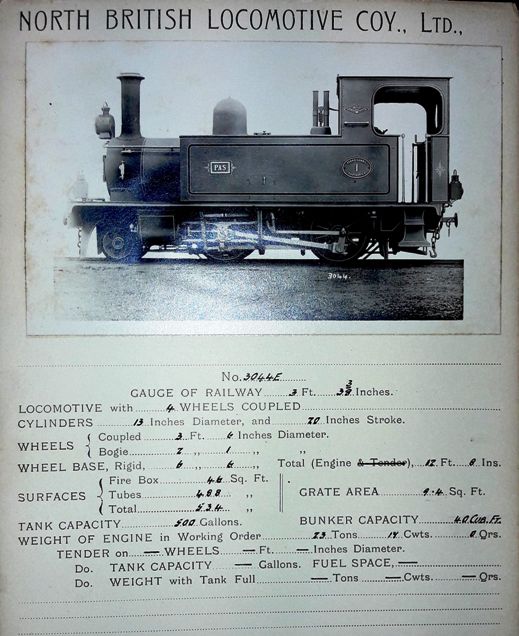 NORTH BRITISH LOCOMOTIVE COY., LTD.,
P&S
1
3044.
No. 3044E
GAUGE OF RAILWAY 3 Ft. 3 3/8 Inches.
LOCOMOTIVE with 4 WHEELS COUPLED
CYLINDERS 13 Inches Diameter, and 20 Inches Stroke.
WHEELS { Coupled 3 Ft. 6 Inches Diameter.
Bogie 2 „ 1 „ „
WHEEL BASE, Rigid, 6 „ 6 „ Total (Engine & Tender), 12 Ft. 0 Ins.
SURFACES { Fire Box 46 Sq. Ft.
Tubes 488 „
Total 534 „
GRATE AREA 9.4 Sq. Ft.
TANK CAPACITY 500 Gallons. BUNKER CAPACITY 40 Cub. Ft.
WEIGHT OF ENGINE in Working Order 23 Tons 14 Cwts. 0 Qrs.
TENDER on — WHEELS — Ft. — Inches Diameter.
Do. TANK CAPACITY — Gallons. FUEL SPACE, —
Do. WEIGHT with Tank Full — Tons — Cwts. — Qrs.